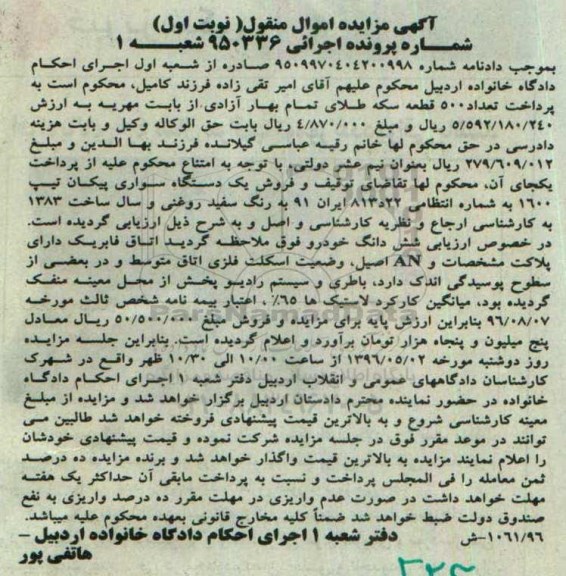 آگهی مزایده اموال منقول( نوبت اول)
شماره پرونده اجرائی ۹۵۰۳۳۶ شعبه ۱
بموجب دادنامه شماره ۹۵۰۹۹۷۰۴۰۴۲۰۰۹۹۸ صادره از شعبه اول اجرای احکام
دادگاه خانواده اردبیل محکوم علیهم آقای امیر تقی زاده فرزند کامیل، محکوم است به
پرداخت تعداد۵۰۰ قطعه سکه طلای تمام بهار آزادی از بابت مهریه به ارزش
۵/۵۹۲/۱۸۰/۲۴۰ ریال و مبلغ ۴/۸۷۰/۰۰۰ ریال بابت حق الوکاله وکیل و بابت هزینه
دادرسی در حق محکوم لها خانم رقیه عباسی گیلانده فرزند بها الدین و مبلغ
۲۷۹/۶۰۹/۰۱۲ ریال بعنوان نیم عشر دولتی. با توجه به امتناع محکوم علیه از پرداخت
یکجای آن، محکوم لها تقاضای توقیف و فروش یک دستگاه سواری پیکان تیپ
۱۶۰۰ به شماره انتظامی ۲۲د۸۱۳ ایران ۹۱ به رنگ سفید روغنی و سال ساخت ۱۳۸۳
به کارشناسی ارجاع و نظریه کارشناسی و اصل و به شرح ذیل ارزیابی گردیده است.
در خصوص ارزیابی شش دانگ خودرو فوق ملاحظه گردید اتاق فابریک دارای
پلاکت مشخصات و AN اصیل، وضعیت اسکلت فلزی اتاق متوسط و در بعضی از
سطوح پوسیدگی اندک دارد، باطری و سیستم رادیو پخش از محل معینه منفک
گردیده بود، میانگین کارکرد لاستیک ها ۶۵٪ ، اعتبار بیمه نامه شخص ثالث مورخه
۹۶/۰۸/۰۷ بنابراین ارزش پایه برای مزایده و فروش مبلغ ۵۰/۵۰۰/۰۰۰ ریال معادل
پنج میلیون و پنجاه هزار تومان برآورد و اعلام گردیده است. بنابراین جلسه مزایده
روز دوشنبه مورخه ۱۳۹۶/۰۵/۰۲ از ساعت ۱۰/۰۰ الی ۱۰/۳۰ ظهر واقع در شهرک
کارشناسان دادگاههای عمومی و انقلاب اردبیل دفتر شعبه ۱ اجرای احکام دادگاه
خانواده در حضور نماینده محترم دادستان اردبیل برگزار خواهد شد و مزایده از مبلغ
معینه کارشناسی شروع و به بالاترین قیمت پیشنهادی فروخته خواهد شد طالبین می
توانند در موعد مقرر فوق در جلسه مزایده شرکت نموده و قیمت پیشنهادی خودشان
را اعلام نمایند مزایده به بالاترین قیمت واگذار خواهد شد و برنده مزایده ده درصد
ثمن معامله را فی المجلس پرداخت و نسبت به پرداخت مابقی آن حداکثر یک هفته
مهلت خواهد داشت در صورت عدم واریزی در مهلت مقرر ده درصد واریزی به نفع
صندوق دولت ضبط خواهد شد ضمناً کلیه مخارج قانونی بعهده محکوم علیه میباشد.
۱۰۶۱/۹۶-ش دفتر شعبه ۱ اجرای احکام دادگاه خانواده اردبیل –
هاتفی پور